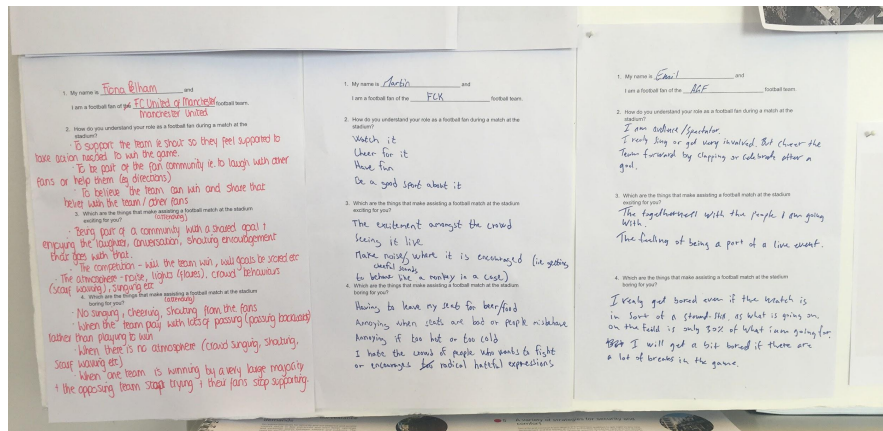 1. My name is Fiona Pelham and
I am a football fan of the FC United of Manchester football team.
Manchester United
2. How do you understand your role as a football fan during a match at the
stadium?
· To support the team ie shout so they feel supported to
take action needed to win the game.
· To be part of the fan community ie. to laugh with other
fans or help them (eg directions)
· To believe the team can win and share that
belief with the team / other fans
3. Which are the things that make assisting a football match at the stadium
exciting for you? (attending)
· Being part of a community with a shared goal +
enjoying the laughter, conversation, shouting encouragement
that goes with that.
· The competition - will the team win, will goals be scored etc
· The atmosphere - noise, lights (flares), crowd behaviours
(scarf waving), singing etc
4. Which are the things that make assisting a football match at the stadium
boring for you? (attending)
· No singing, cheering, shouting from the fans
· When the team play with lots of passing (passing backwards)
rather than playing to win
· When there is no atmosphere (crowd singing, shouting,
scarf waving etc)
· When one team is winning by a very large majority
+ the opposing team stop trying + their fans stop supporting.
1. My name is Martin and
I am a football fan of the FCK football team.
2. How do you understand your role as a football fan during a match at the
stadium?
Watch it
Cheer for it
Have fun
Be a good sport about it
3. Which are the things that make assisting a football match at the stadium
exciting for you?
The excitement amongst the crowd
Seeing it live
Make noise/ where it is encouraged (i.e. getting
cheerful sounds
to behave like a monkey in a cage)
4. Which are the things that make assisting a football match at the stadium
boring for you?
Having to leave my seat for beer/food
Annoying when seats are bad or people misbehave
Annoying if too hot or too cold
I hate the crowd of people who wants to fight
or encourages radical hateful expressions
1. My name is Emil and
I am a football fan of the AGF football team.
2. How do you understand your role as a football fan during a match at the
stadium?
I am audience/spectator.
I rearly sing or get very involved. But cheer the
Team forward by clapping or celebrate after a
goal.
3. Which are the things that make assisting a football match at the stadium
exciting for you?
The togetherness with the people I am going
with.
The feeling of being a part of a live event.
4. Which are the things that make assisting a football match at the stadium
boring for you?
I realy get bored even if the match is
in sort of a stand-still, as what is going on
on the field is only 30% of what i am going for.
I will get a bit bored if there are
a lot of breaks in the game.